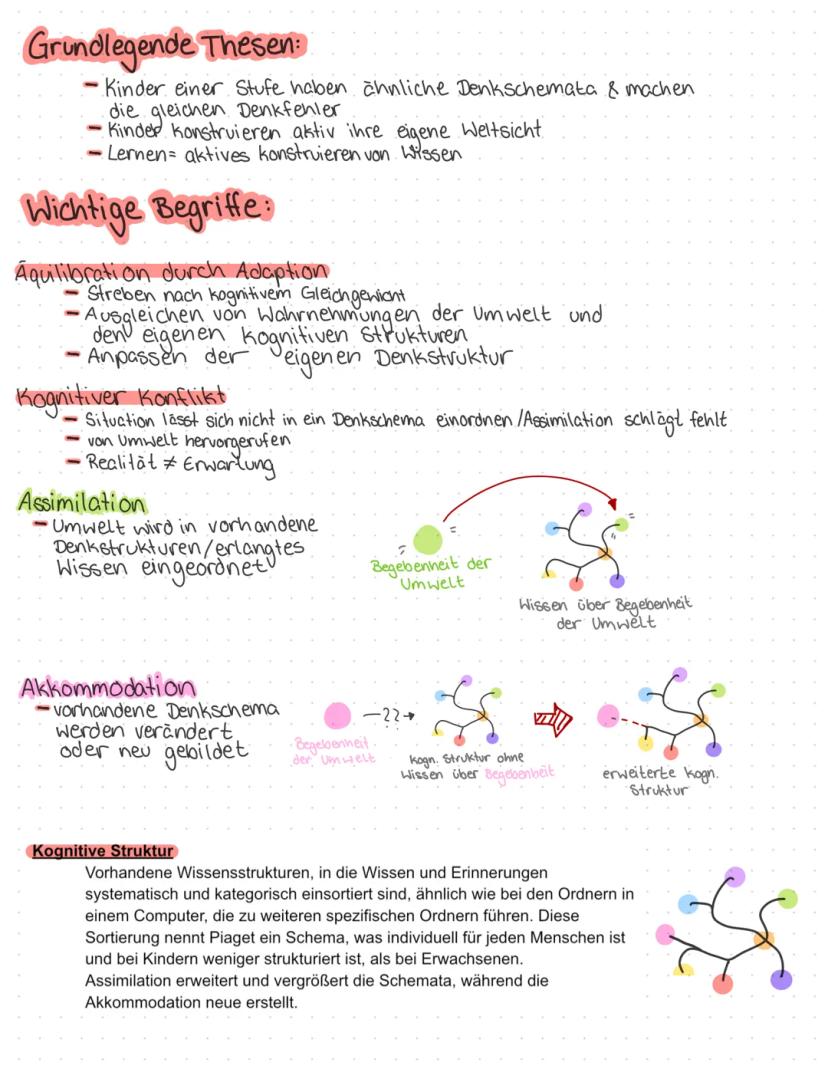 Grundlegende Thesen:
- Kinder einer Stufe haben ähnliche Denkschemata & machen
die gleichen Denkfehler
- Kinder konstruieren aktiv ihre eigene Weltsicht
- Lernen= aktives konstruieren von Wissen
Wichtige Begriffe:
Äquilibration durch Adaption
- Streben nach kognitivem Gleichgewicht
- Ausgleichen von Wahrnehmungen der Umwelt und
den eigenen kognitiven Strukturen
- Anpassen der eigenen Denkstruktur
Kognitiver Konflikt
- Situation lässt sich nicht in ein Denkschema einordnen /Assimilation schlägt fehlt
- von Umwelt hervorgerufen
- Realität ≠ Erwartung
Assimilation
- Umwelt wird in vorhandene
Denkstrukturen/erlangtes
Wissen eingeordnet
Begebenheit der
Umwelt
Wissen über Begebenheit
der Umwelt
Akkommodation
- vorhandene Denkschema
werden verändert
oder neu gebildet
Begebenheit
der Umwelt
-??→
kogn. Struktur ohne
Wissen über Begebenheit
erweiterte kogn.
Struktur
Kognitive Struktur
Vorhandene Wissensstrukturen, in die Wissen und Erinnerungen
systematisch und kategorisch einsortiert sind, ähnlich wie bei den Ordnern in
einem Computer, die zu weiteren spezifischen Ordnern führen. Diese
Sortierung nennt Piaget ein Schema, was individuell für jeden Menschen ist
und bei Kindern weniger strukturiert ist, als bei Erwachsenen.
Assimilation erweitert und vergrößert die Schemata, während die
Akkommodation neue erstellt.